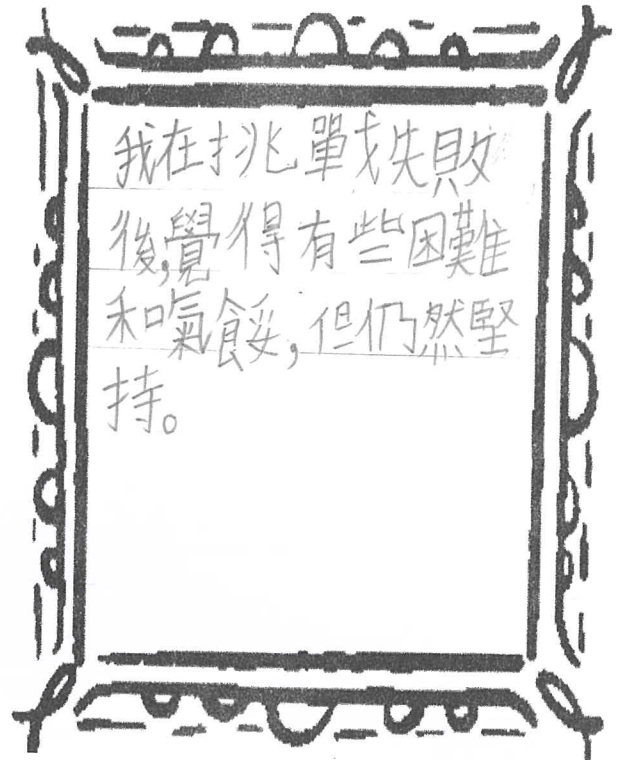 我在挑戰失敗
後,覺得有些困難
和氣餒,但仍然堅
持。